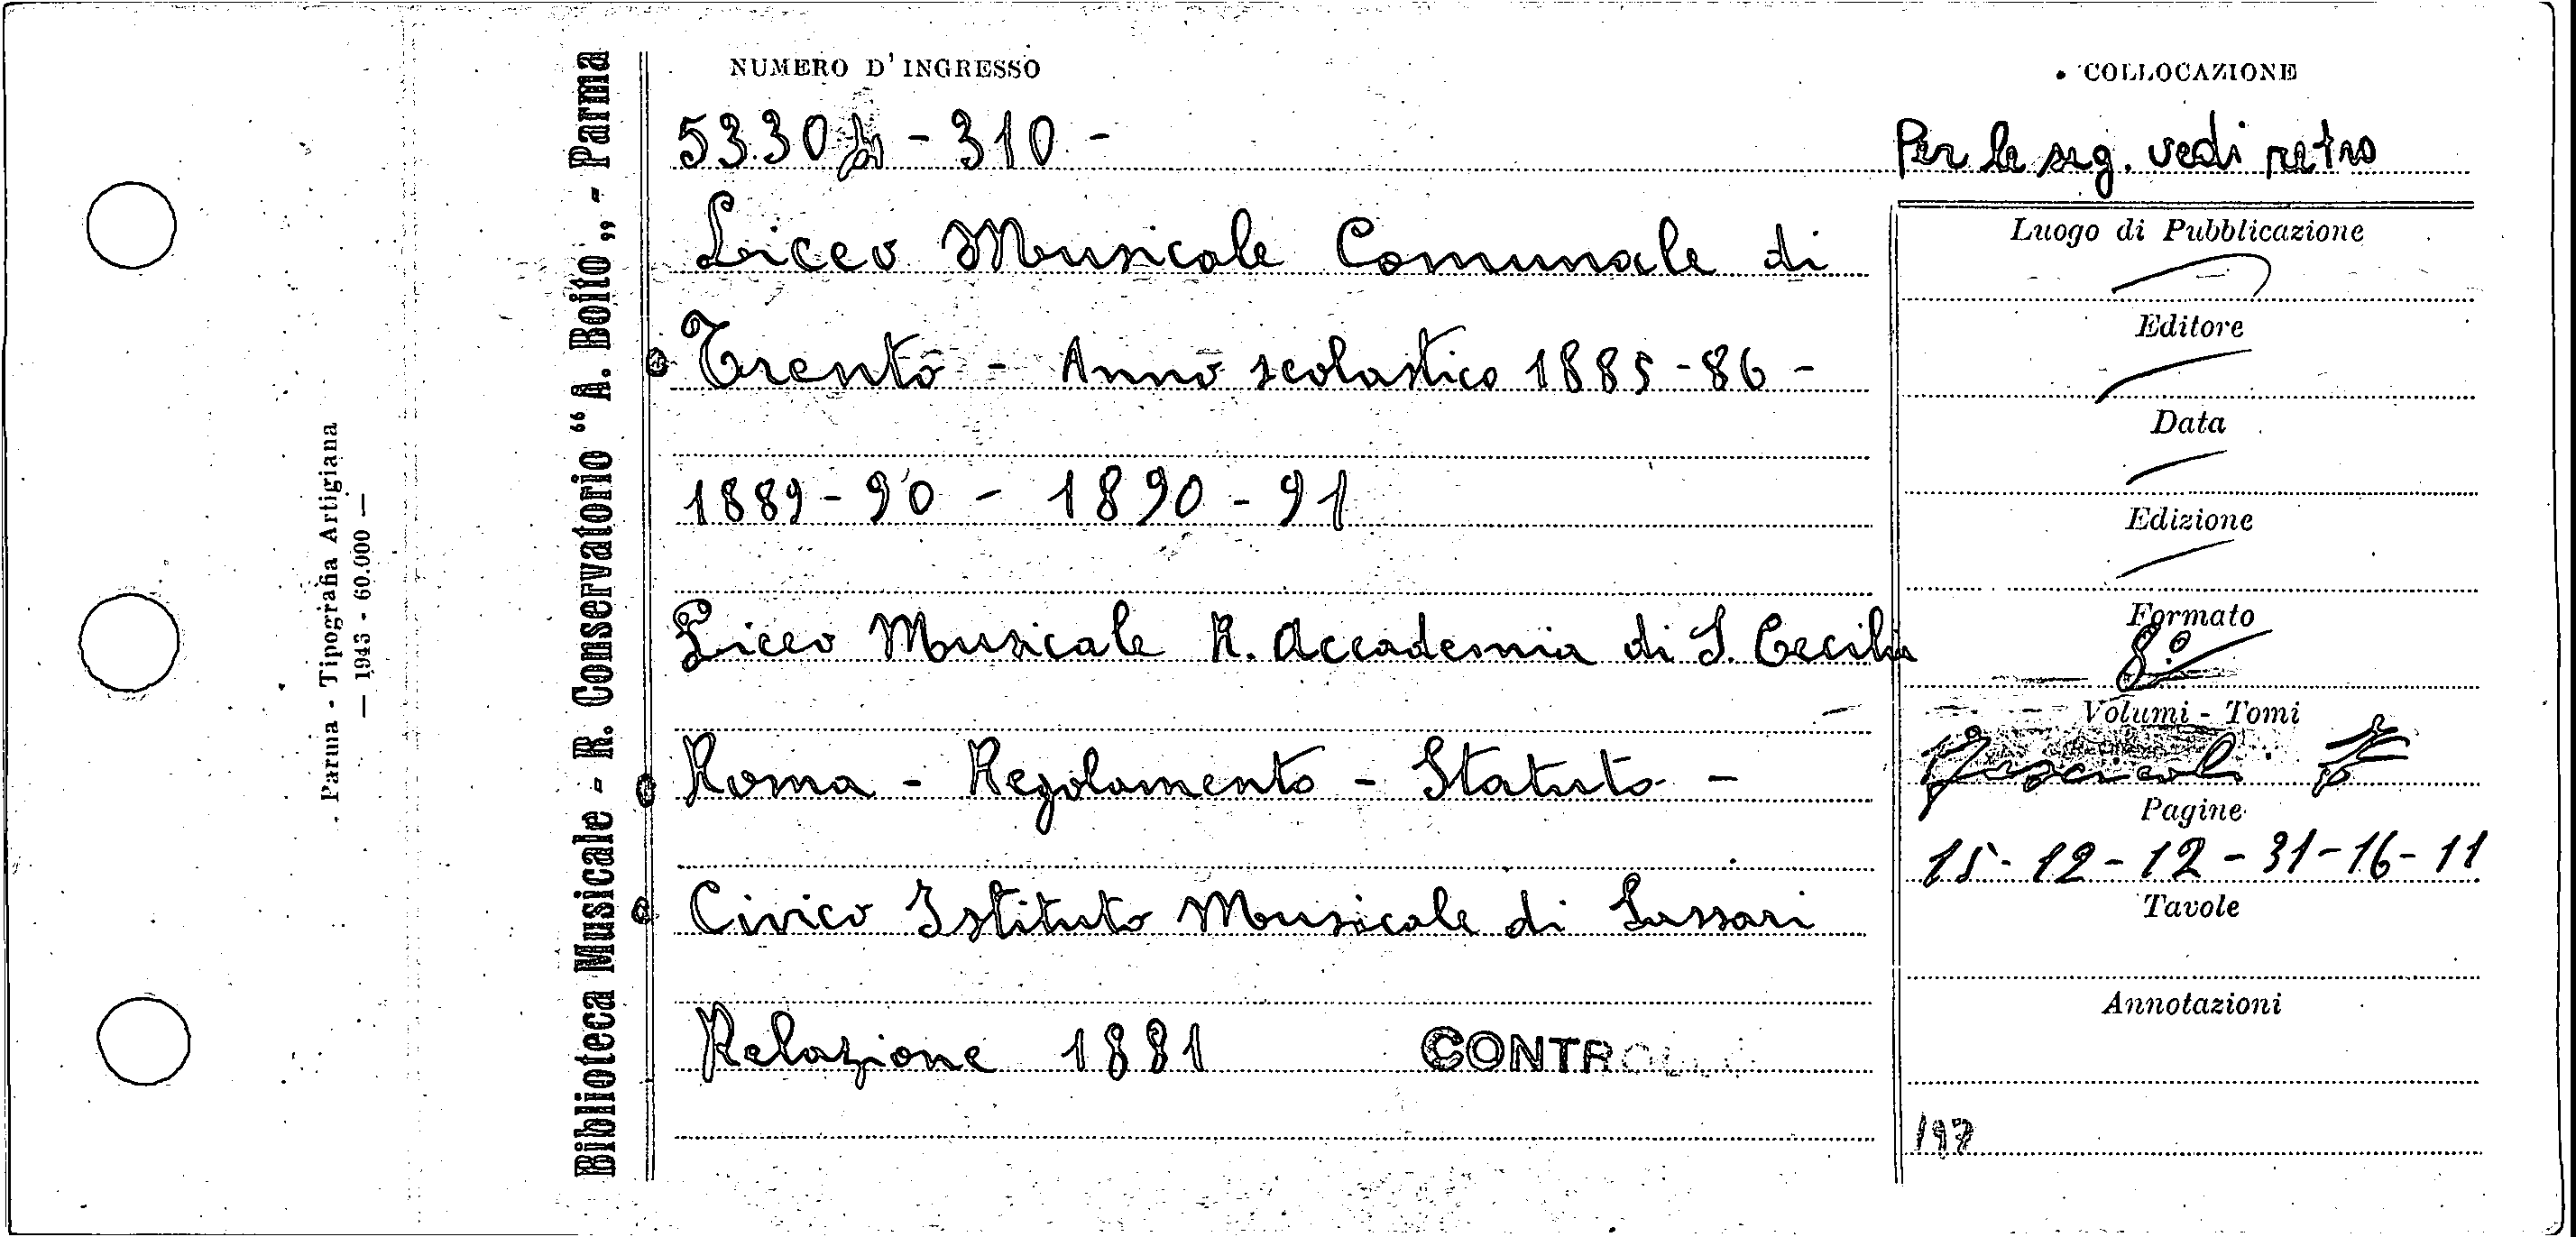 Parma - Tipografia Artigiana
— 1943 - 60.000 —
Biblioteca Musicale - R. Conservatorio “A. Boito„ - Parma
NUMERO D'INGRESSO
5330 - 310 -
Liceo Musicale Comunale di
Trento - Anno scolastico 1885-86 -
1889-90 - 1890-91
Liceo Musicale R. Accademia di S. Cecilia
Roma - Regolamento - Statuto -
Civico Istituto Musicale di Sassari
Relazione 1881
COLLOCAZIONE
Per le seg. vedi retro
Luogo di Pubblicazione
Editore
Data
Edizione
Formato
8º
Volumi - Tomi
Fascicoli
Pagine
15-12-12-31-16-11
Tavole
Annotazioni
197